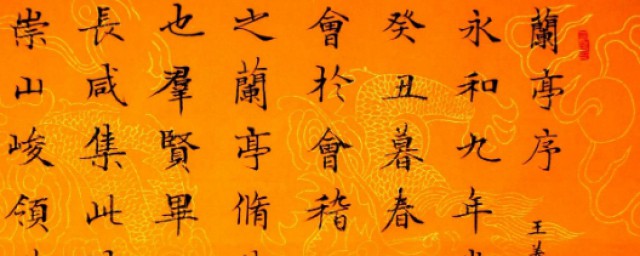 蘭亭序
王
永和九年
癸丑暮春
會於會稽
之蘭亭脩
也羣賢畢
長咸集此
崇山峻領